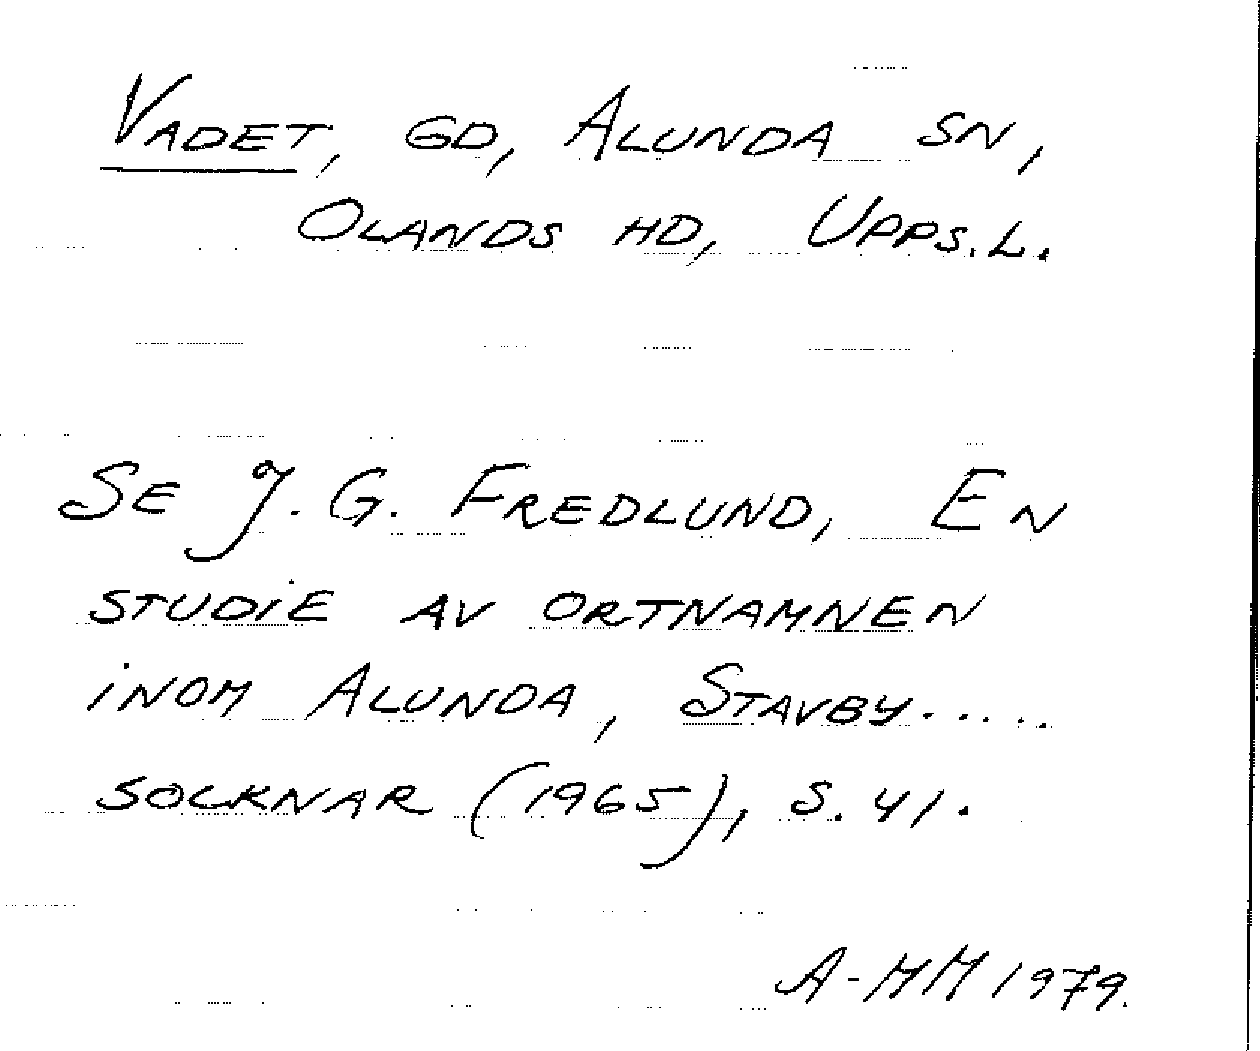 Vadet, gd, Alunda sn,
Olands hd, Upps.l.
Se J. G. Fredlund, En
studie av ortnamnen
inom Alunda, Stavby.....
socknar (1965), s. 41.
A-MM 1979.